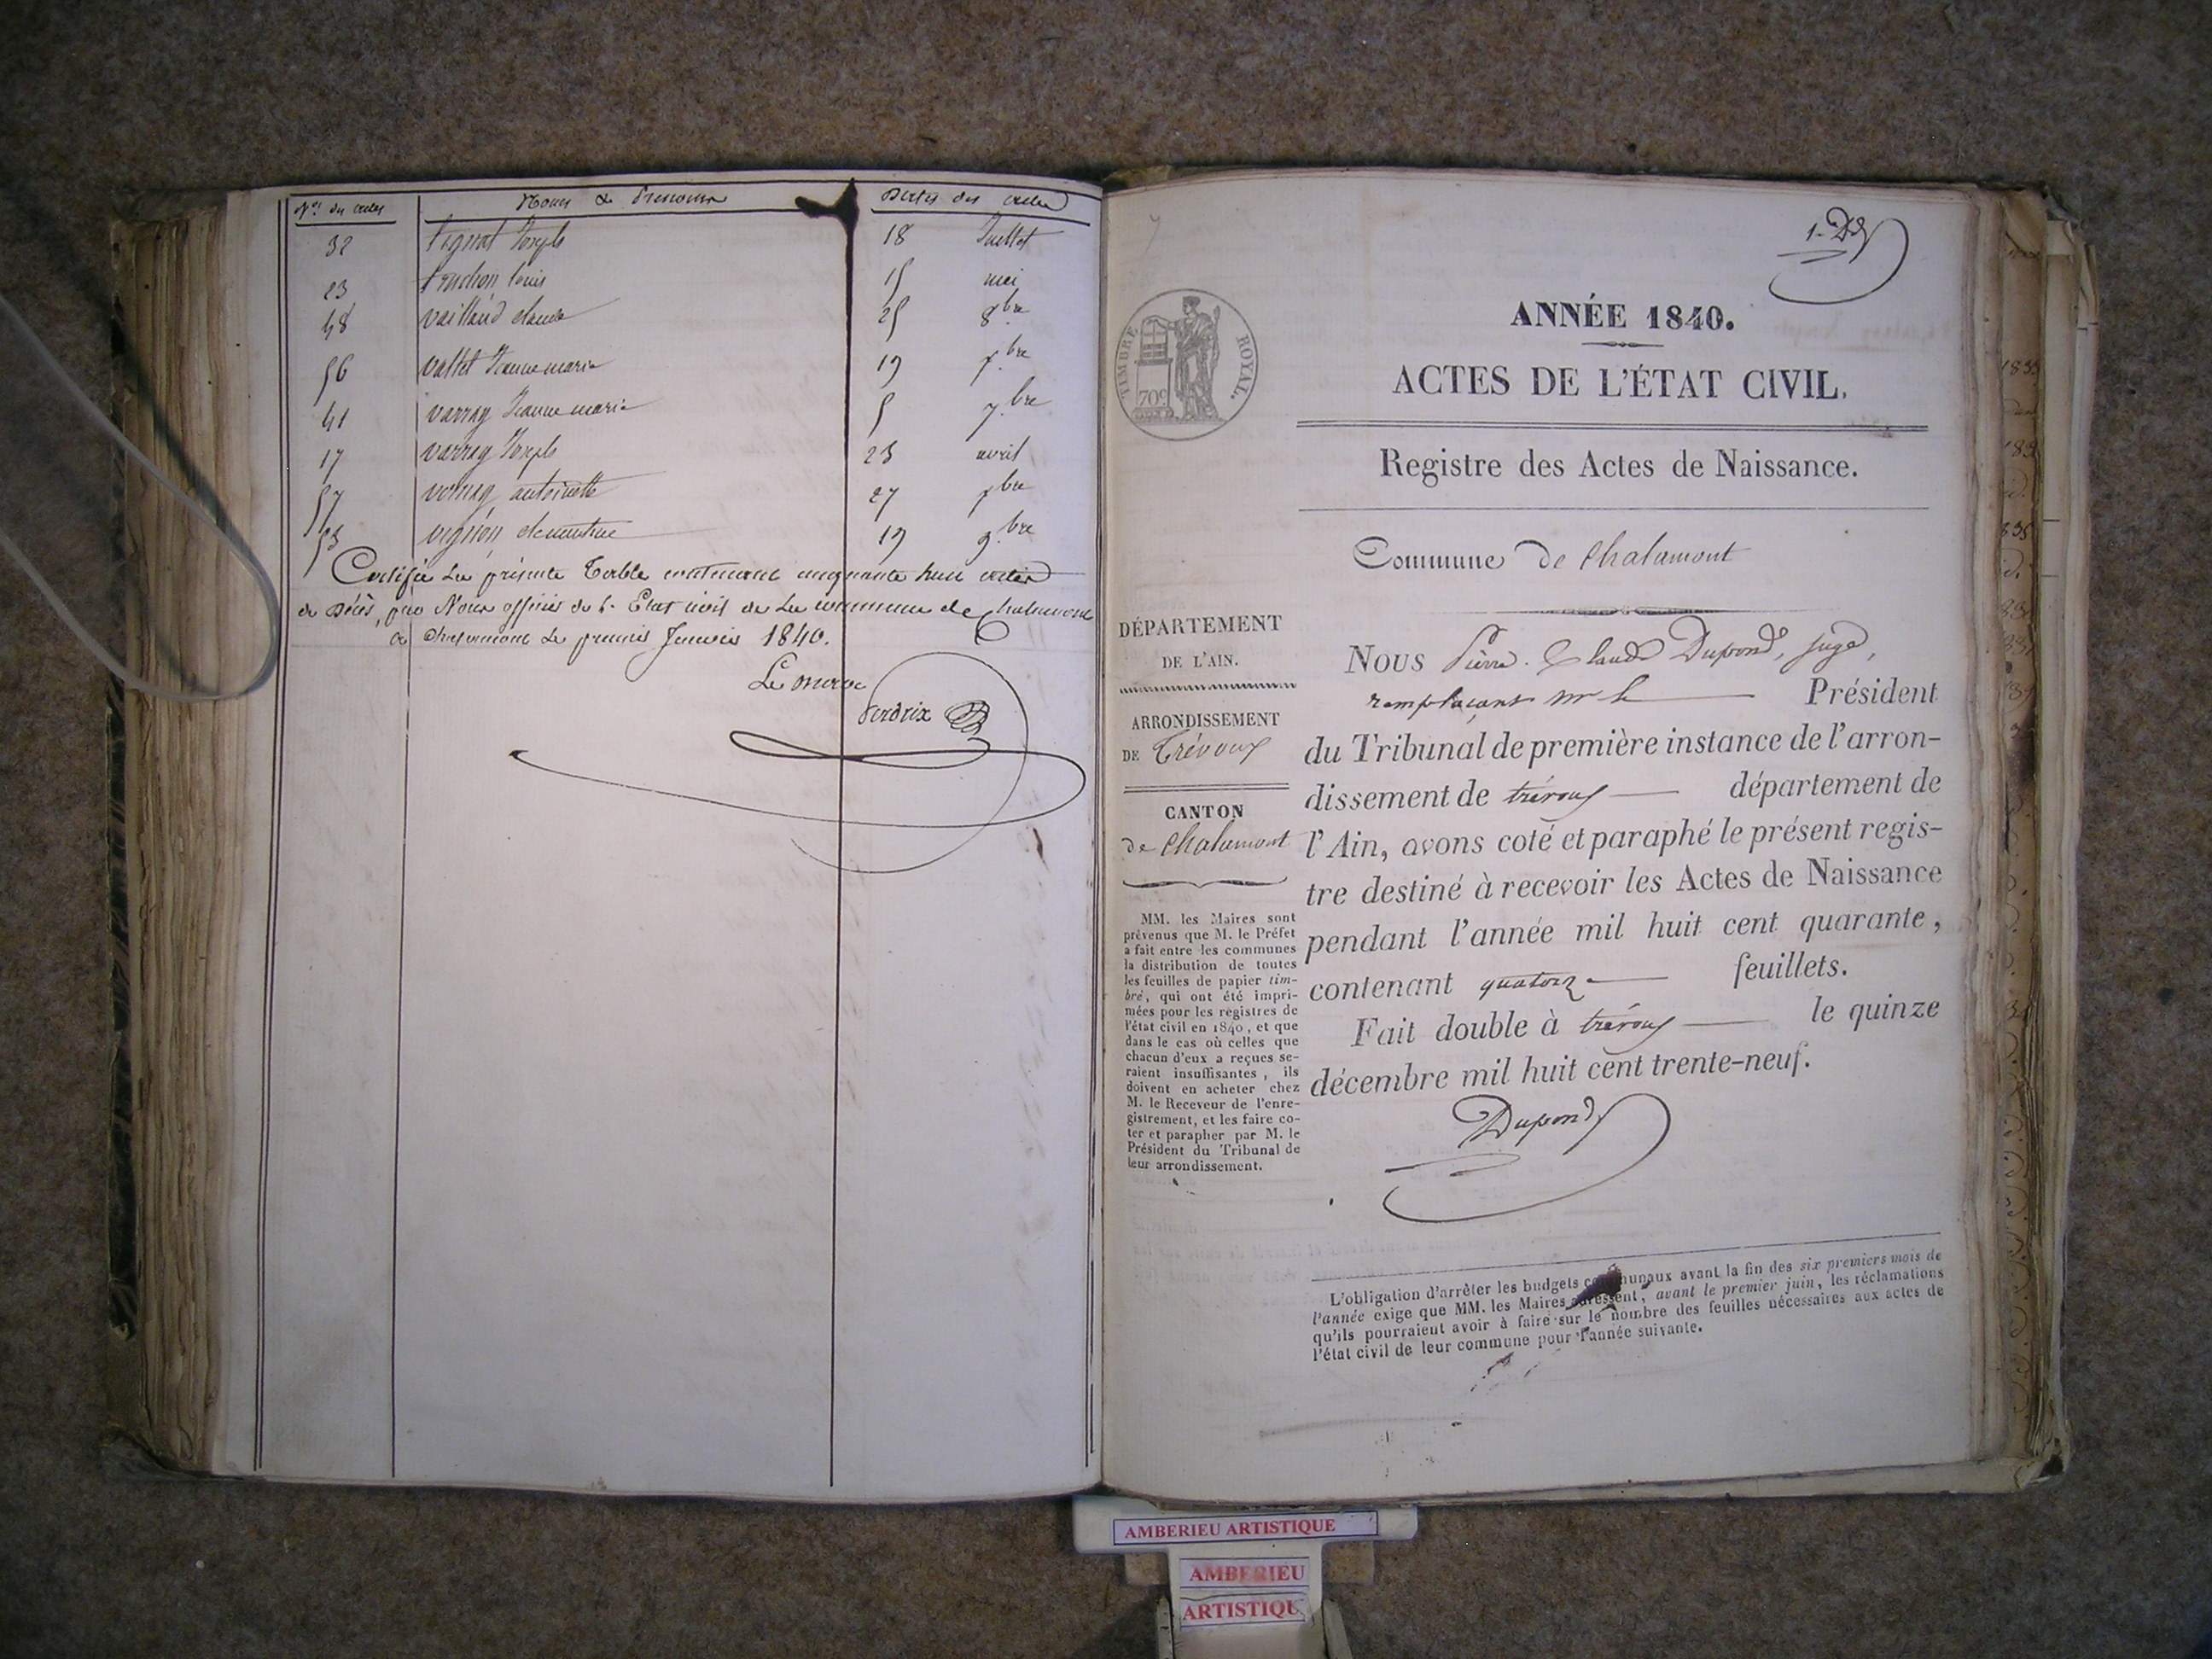 Nos des actes Noms & Prenoms Dates des actes
32 Joseph 18 Juillet
23 louis 15 mai
48 vaillaud claude 25 8bre
56 vallet Jeanne marie 19 xbre
41 varray Jeanne marie 5 7bre
17 varray Joseph 23 avril
57 antoinette 27 xbre
53 clementine 19 9bre
Certifié La présente Table contenant cinquante huit actes
de Décès, par Nous officier de l'Etat civil de La commune de Chalamont
a chalamont Le premier Janvier 1840.
Le maire
Perdrix
1. Dd
ANNÉE 1840.
ACTES DE L'ÉTAT CIVIL.
Registre des Actes de Naissance.
TIMBRE ROYAL.
70c
Commune de Chalamont
DÉPARTEMENT
DE L'AIN.
ARRONDISSEMENT
DE Trévoux
CANTON
de Chalamont
MM. les Maires sont
prévenus que M. le Préfet
a fait entre les communes
la distribution de toutes
les feuilles de papier tim-
bré, qui ont été impri-
mées pour les registres de
l'état civil en 1840, et que
dans le cas où celles que
chacun d'eux a reçues se-
raient insuffisantes, ils
doivent en acheter chez
M. le Receveur de l'enre-
gistrement, et les faire co-
ter et parapher par M. le
Président du Tribunal de
leur arrondissement.
NOUS Pierre Claude Dupond, juge,
remplaçant mr le Président
du Tribunal de première instance de l'arron-
dissement de trévoux département de
l'Ain, avons coté et paraphé le présent regis-
tre destiné à recevoir les Actes de Naissance
pendant l'année mil huit cent quarante,
contenant quatorze feuillets.
Fait double à trévoux le quinze
décembre mil huit cent trente-neuf.
Dupond
L'obligation d'arrêter les budgets communaux avant la fin des six premiers mois de
l'année exige que MM. les Maires adressent, avant le premier juin, les réclamations
qu'ils pourraient avoir à faire sur le nombre des feuilles nécessaires aux actes de
l'état civil de leur commune pour l'année suivante.
AMBERIEU ARTISTIQUE
AMBERIEU
ARTISTIQUE